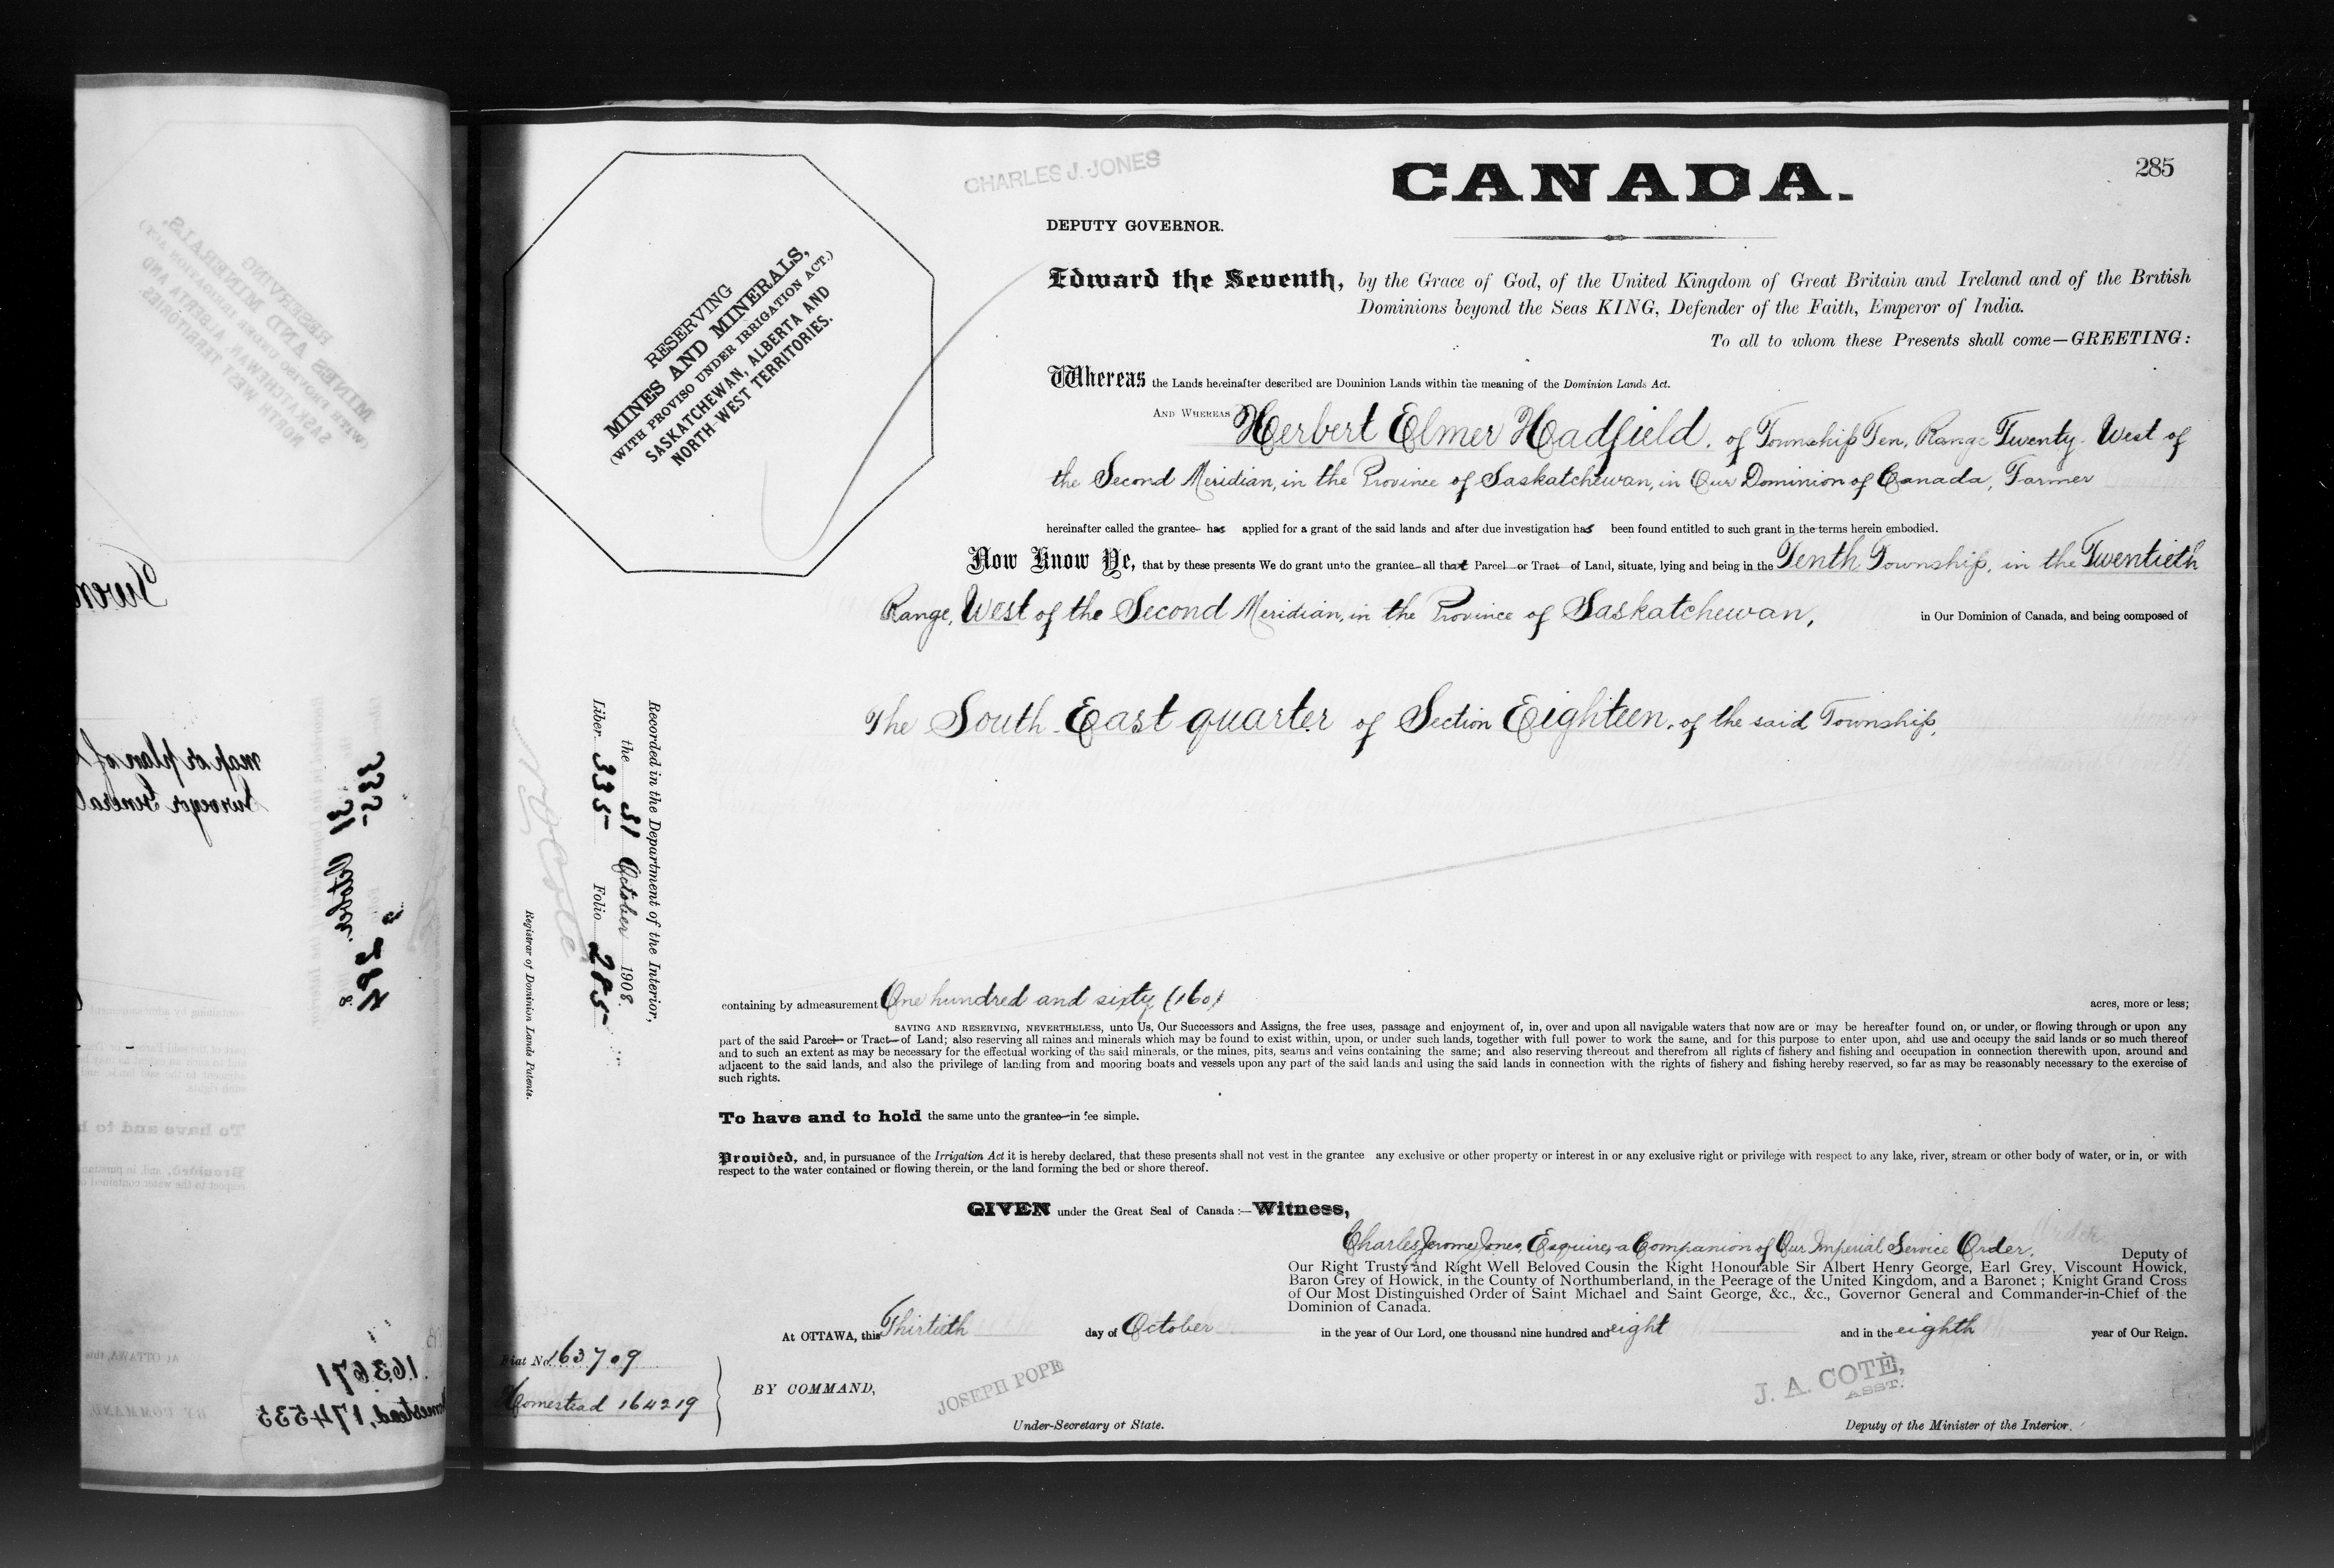 CHARLES J. JONES
CANADA.
285
DEPUTY GOVERNOR.
RESERVING
MINES AND MINERALS,
(WITH PROVISO UNDER IRRIGATION ACT.)
SASKATCHEWAN, ALBERTA AND
NORTH-WEST TERRITORIES.
Edward the Seventh, by the Grace of God, of the United Kingdom of Great Britain and Ireland and of the British
Dominions beyond the Seas KING, Defender of the Faith, Emperor of India.
To all to whom these Presents shall come—GREETING:
Whereas the Lands hereinafter described are Dominion Lands within the meaning of the Dominion Lands Act.
AND WHEREAS Herbert Elmer Hadfield, of Township Ten, Range Twenty, West of
the Second Meridian, in the Province of Saskatchewan, in Our Dominion of Canada, Farmer
hereinafter called the grantee has applied for a grant of the said lands and after due investigation has been found entitled to such grant in the terms herein embodied.
Now Know Ye, that by these presents We do grant unto the grantee all that Parcel or Tract of Land, situate, lying and being in the Tenth Township, in the Twentieth
Range, West of the Second Meridian, in the Province of Saskatchewan, in Our Dominion of Canada, and being composed of
The South East quarter of Section Eighteen, of the said Township,
Recorded in the Department of the Interior,
the 31 October 1908.
Liber 335 Folio 285
Registrar of Dominion Lands Patents.
containing by admeasurement One hundred and sixty (160) acres, more or less;
SAVING AND RESERVING, NEVERTHELESS, unto Us, Our Successors and Assigns, the free uses, passage and enjoyment of, in, over and upon all navigable waters that now are or may be hereafter found on, or under, or flowing through or upon any
part of the said Parcel or Tract of Land; also reserving all mines and minerals which may be found to exist within, upon, or under such lands, together with full power to work the same, and for this purpose to enter upon, and use and occupy the said lands or so much thereof
and to such an extent as may be necessary for the effectual working of the said minerals, or the mines, pits, seams and veins containing the same; and also reserving thereout and therefrom all rights of fishery and fishing and occupation in connection therewith upon, around and
adjacent to the said lands, and also the privilege of landing from and mooring boats and vessels upon any part of the said lands and using the said lands in connection with the rights of fishery and fishing hereby reserved, so far as may be reasonably necessary to the exercise of
such rights.
To have and to hold the same unto the grantee in fee simple.
Provided, and, in pursuance of the Irrigation Act it is hereby declared, that these presents shall not vest in the grantee any exclusive or other property or interest in or any exclusive right or privilege with respect to any lake, river, stream or other body of water, or in, or with
respect to the water contained or flowing therein, or the land forming the bed or shore thereof.
GIVEN under the Great Seal of Canada:—Witness,
Charles Jerome Jones, Esquire, a Companion of Our Imperial Service Order, Deputy of
Our Right Trusty and Right Well Beloved Cousin the Right Honourable Sir Albert Henry George, Earl Grey, Viscount Howick,
Baron Grey of Howick, in the County of Northumberland, in the Peerage of the United Kingdom, and a Baronet; Knight Grand Cross
of Our Most Distinguished Order of Saint Michael and Saint George, &c., &c., Governor General and Commander-in-Chief of the
Dominion of Canada.
At OTTAWA, this Thirtieth day of October in the year of Our Lord, one thousand nine hundred and eight and in the eighth year of Our Reign.
Fiat No. 163709
Homestead 164219
BY COMMAND,
JOSEPH POPE
Under-Secretary of State.
J. A. COTÈ,
ASST.
Deputy of the Minister of the Interior.